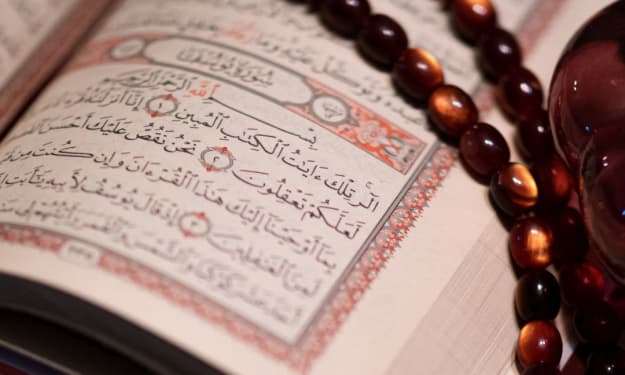 وَتَوَكَّلْ عَلَيْهِ وَمَا
سُورَةُ يُوسُفَ
بِسْمِ ٱللَّهِ ٱلرَّحْمَٰنِ ٱلرَّحِيمِ
الٓر تِلْكَ ءَايَٰتُ ٱلْكِتَٰبِ ٱلْمُبِينِ ١ إِنَّآ أَنزَلْنَٰهُ
لَّعَلَّكُمْ تَعْقِلُونَ ٢ نَحْنُ نَقُصُّ عَلَيْكَ أَحْسَنَ
بِمَآ أَوْحَيْنَآ إِلَيْكَ هَٰذَا ٱلْقُرْءَانَ وَإِن كُنتَ مِن
لَمِنَ ٱلْغَٰفِلِينَ ٣ إِذْ قَالَ يُوسُفُ لِأَبِيهِ يَٰٓأَبَتِ
أَحَدَ عَشَرَ كَوْكَبًا وَٱلشَّمْسَ وَٱلْقَمَرَ رَأَيْتُهُمْ لِى